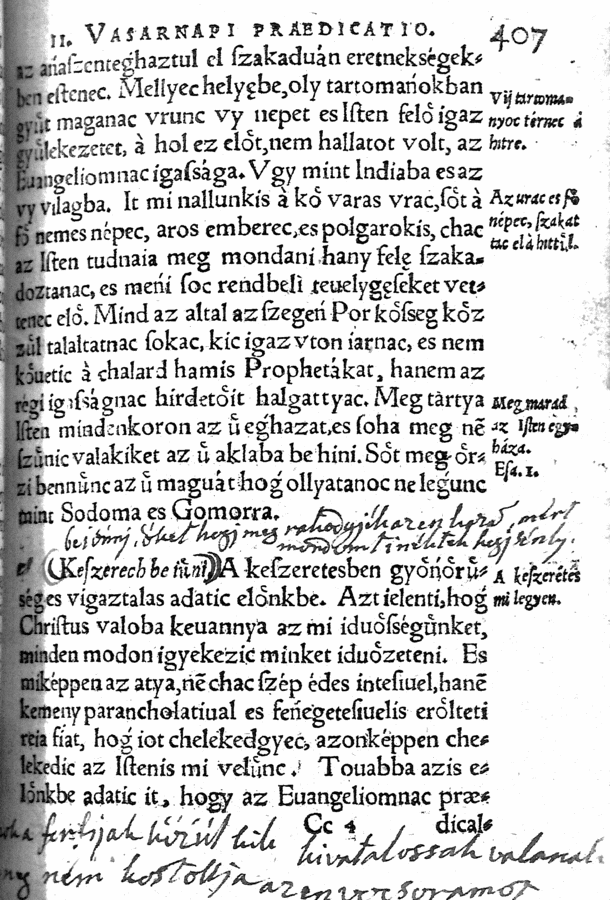 II. VASARNAPI PRAEDICATIO. 407
az ańaſzenteģhaztul el ſzakaduán eretnekségek⸗
ben eſtenec. Mellyec helyębe, oly tartomańokban
gyűt maganac vrunc vy nepet es Iſten felő igaz
gyűlekezetet, à hol ez előt, nem hallatot volt, az
Euangeliomnac igaſsága. Vgy mint Indiaba es az
vy vilagba. It mi nallunkis à kő varas vrac, ſőt à
fő nemes népec, aros emberec, es polgarokis, chac
az Iſten tudnaia meg mondani hany felę ſzaka⸗
doztanac, es meńi ſoc rendbeli teuelygęſeket vet⸗
tenec elő. Mind az altal az ſzegeń Por kőſseg kőz
zűl talaltatnac ſokac, kic igaz vton iarnac, es nem
kőuetic à chalard hamis Prophetákat, hanem az
régi igaſsàgnac hirdetőit halgattyac. Meg tàrtya
Iſten mindenkoron az ű eģhazat, es ſoha meg nē
ſzűnic valakiket az ű aklaba be hini. Sőt meg őr⸗
zi bennűnc az ű maguát hoģ ollyatanoc ne legunc
mint Sodoma es Gomorra.
Vij tartoma⸗
nyoc térnec à
hitre.
Az urac es fő
népec, ſzakat
tac el à hittűl.
Meg marad
az Iſten egy⸗
háza.
Eſa. 1.
el (Keſzerech be iűni) A keſzeretesben győńőrű⸗
séges vigaztalas adatic előnkbe. Azt ielenti, hoģ
Chriſtus valoba keuannya az mi iduőſségűnket,
minden modon igyekezic minket iduőzeteni. Es
miképpen az atya, nē chac ſzép édes inteſiuel, hanē
kemeny parancholatiual es feńegeteſiuelis erőlteti
reia fiat, hoģ iot chelekedgyec, azonképpen che⸗
lekedic az Iſtenis mi velűnc. Touabba azis e⸗
lőnkbe adatic it, hogy az Euangeliomnac præ⸗
A keſzerétés
mi legyen.
Cc 4 dical⸗
hivatalossak valanak
nem kostollja az en vocsoramot